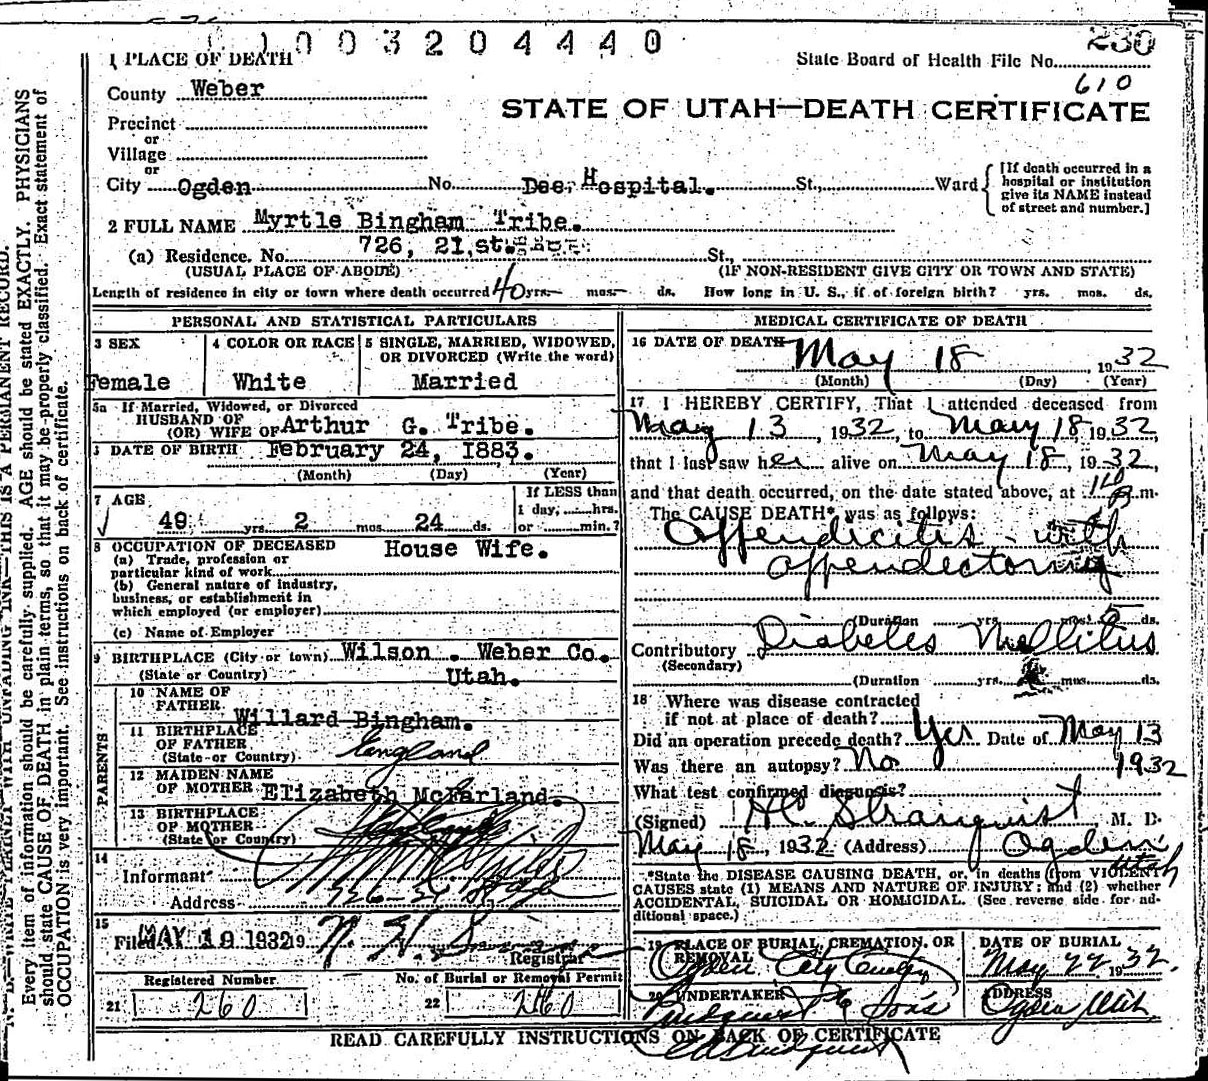 1003204440
230
1 PLACE OF DEATH
State Board of Health File No.
610
County Weber
STATE OF UTAH—DEATH CERTIFICATE
Precinct
or
Village
or
City Ogden No. Dee Hospital. St., Ward
[If death occurred in a hospital or institution give its NAME instead of street and number.]
2 FULL NAME Myrtle Bingham Tribe.
(a) Residence. No. 726, 21,st. St.,
(USUAL PLACE OF ABODE) (IF NON-RESIDENT GIVE CITY OR TOWN AND STATE)
Length of residence in city or town where death occurred 40 yrs. mos. ds. How long in U. S., if of foreign birth? yrs. mos. ds.
PERSONAL AND STATISTICAL PARTICULARS
3 SEX
Female
4 COLOR OR RACE
White
5 SINGLE, MARRIED, WIDOWED, OR DIVORCED (Write the word)
Married
5a If Married, Widowed, or Divorced
HUSBAND OF
(OR) WIFE OF Arthur G. Tribe.
DATE OF BIRTH February 24, 1883.
(Month) (Day) (Year)
7 AGE
49 yrs. 2 mos. 24 ds.
If LESS than
1 day, hrs.
or min.?
8 OCCUPATION OF DECEASED House Wife.
(a) Trade, profession or
particular kind of work
(b) General nature of industry,
business, or establishment in
which employed (or employer)
(c) Name of Employer
9 BIRTHPLACE (City or town) Wilson . Weber Co.
(State or Country) Utah.
PARENTS
10 NAME OF
FATHER
Willard Bingham.
11 BIRTHPLACE
OF FATHER
(State or Country) England
12 MAIDEN NAME
OF MOTHER Elizabeth McFarland.
13 BIRTHPLACE
OF MOTHER
(State or Country)
14
Informant
Address
15
Filed MAY 19 1932 19
Registrar
Registered Number
21 260
No. of Burial or Removal Permit
22 260
MEDICAL CERTIFICATE OF DEATH
16 DATE OF DEATH May 18, 1932
(Month) (Day) (Year)
17 I HEREBY CERTIFY, That I attended deceased from
May 13, 1932, to May 18, 1932,
that I last saw her alive on May 18, 1932,
and that death occurred, on the date stated above, at m.
The CAUSE DEATH* was as follows:
Appendicitis - with
appendectomy
(Duration yrs. mos. 5 ds.
Contributory Diabetes Mellitus
(Secondary)
(Duration yrs. mos. ds.
18 Where was disease contracted
if not at place of death?
Did an operation precede death? Yes Date of May 13
1932
Was there an autopsy? No
What test confirmed diagnosis?
(Signed) Stranquist, M. D.
May 18, 1932 (Address) Ogden
Utah
*State the DISEASE CAUSING DEATH, or, in deaths from VIOLENT
CAUSES state (1) MEANS AND NATURE OF INJURY; and (2) whether
ACCIDENTAL, SUICIDAL OR HOMICIDAL. (See reverse side for ad-
ditional space.)
19 PLACE OF BURIAL, CREMATION, OR
REMOVAL
Ogden City
DATE OF BURIAL
May 22 1932.
20 UNDERTAKER
& Sons
ADDRESS
Ogden Utah
READ CAREFULLY INSTRUCTIONS ON BACK OF CERTIFICATE
N. B.—WRITE PLAINLY WITH UNFADING INK—THIS IS A PERMANENT RECORD.
Every item of information should be carefully supplied. AGE should be stated EXACTLY. PHYSICIANS
should state CAUSE OF DEATH in plain terms, so that it may be properly classified. Exact statement of
OCCUPATION is very important. See instructions on back of certificate.